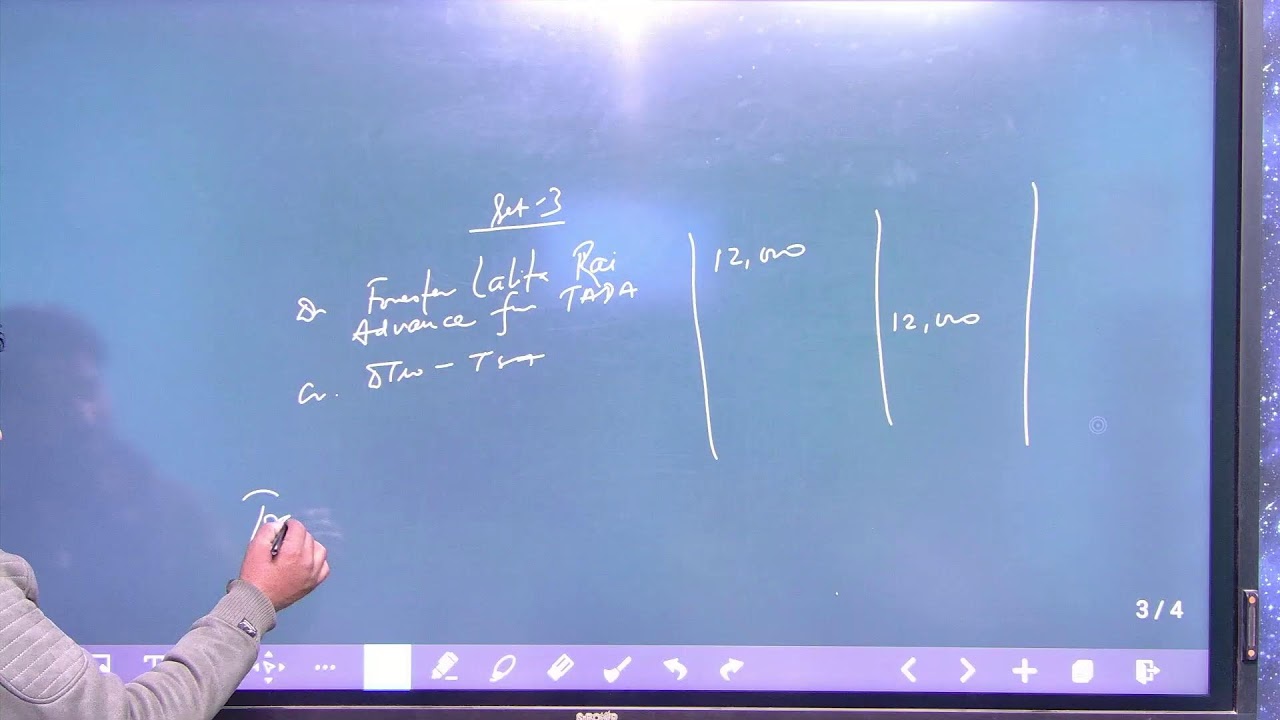 Set-3
Dr Forester Lalita Rai 12,000
Advance for TADA
12,000
Cr. DTCO - TSA
3 / 4